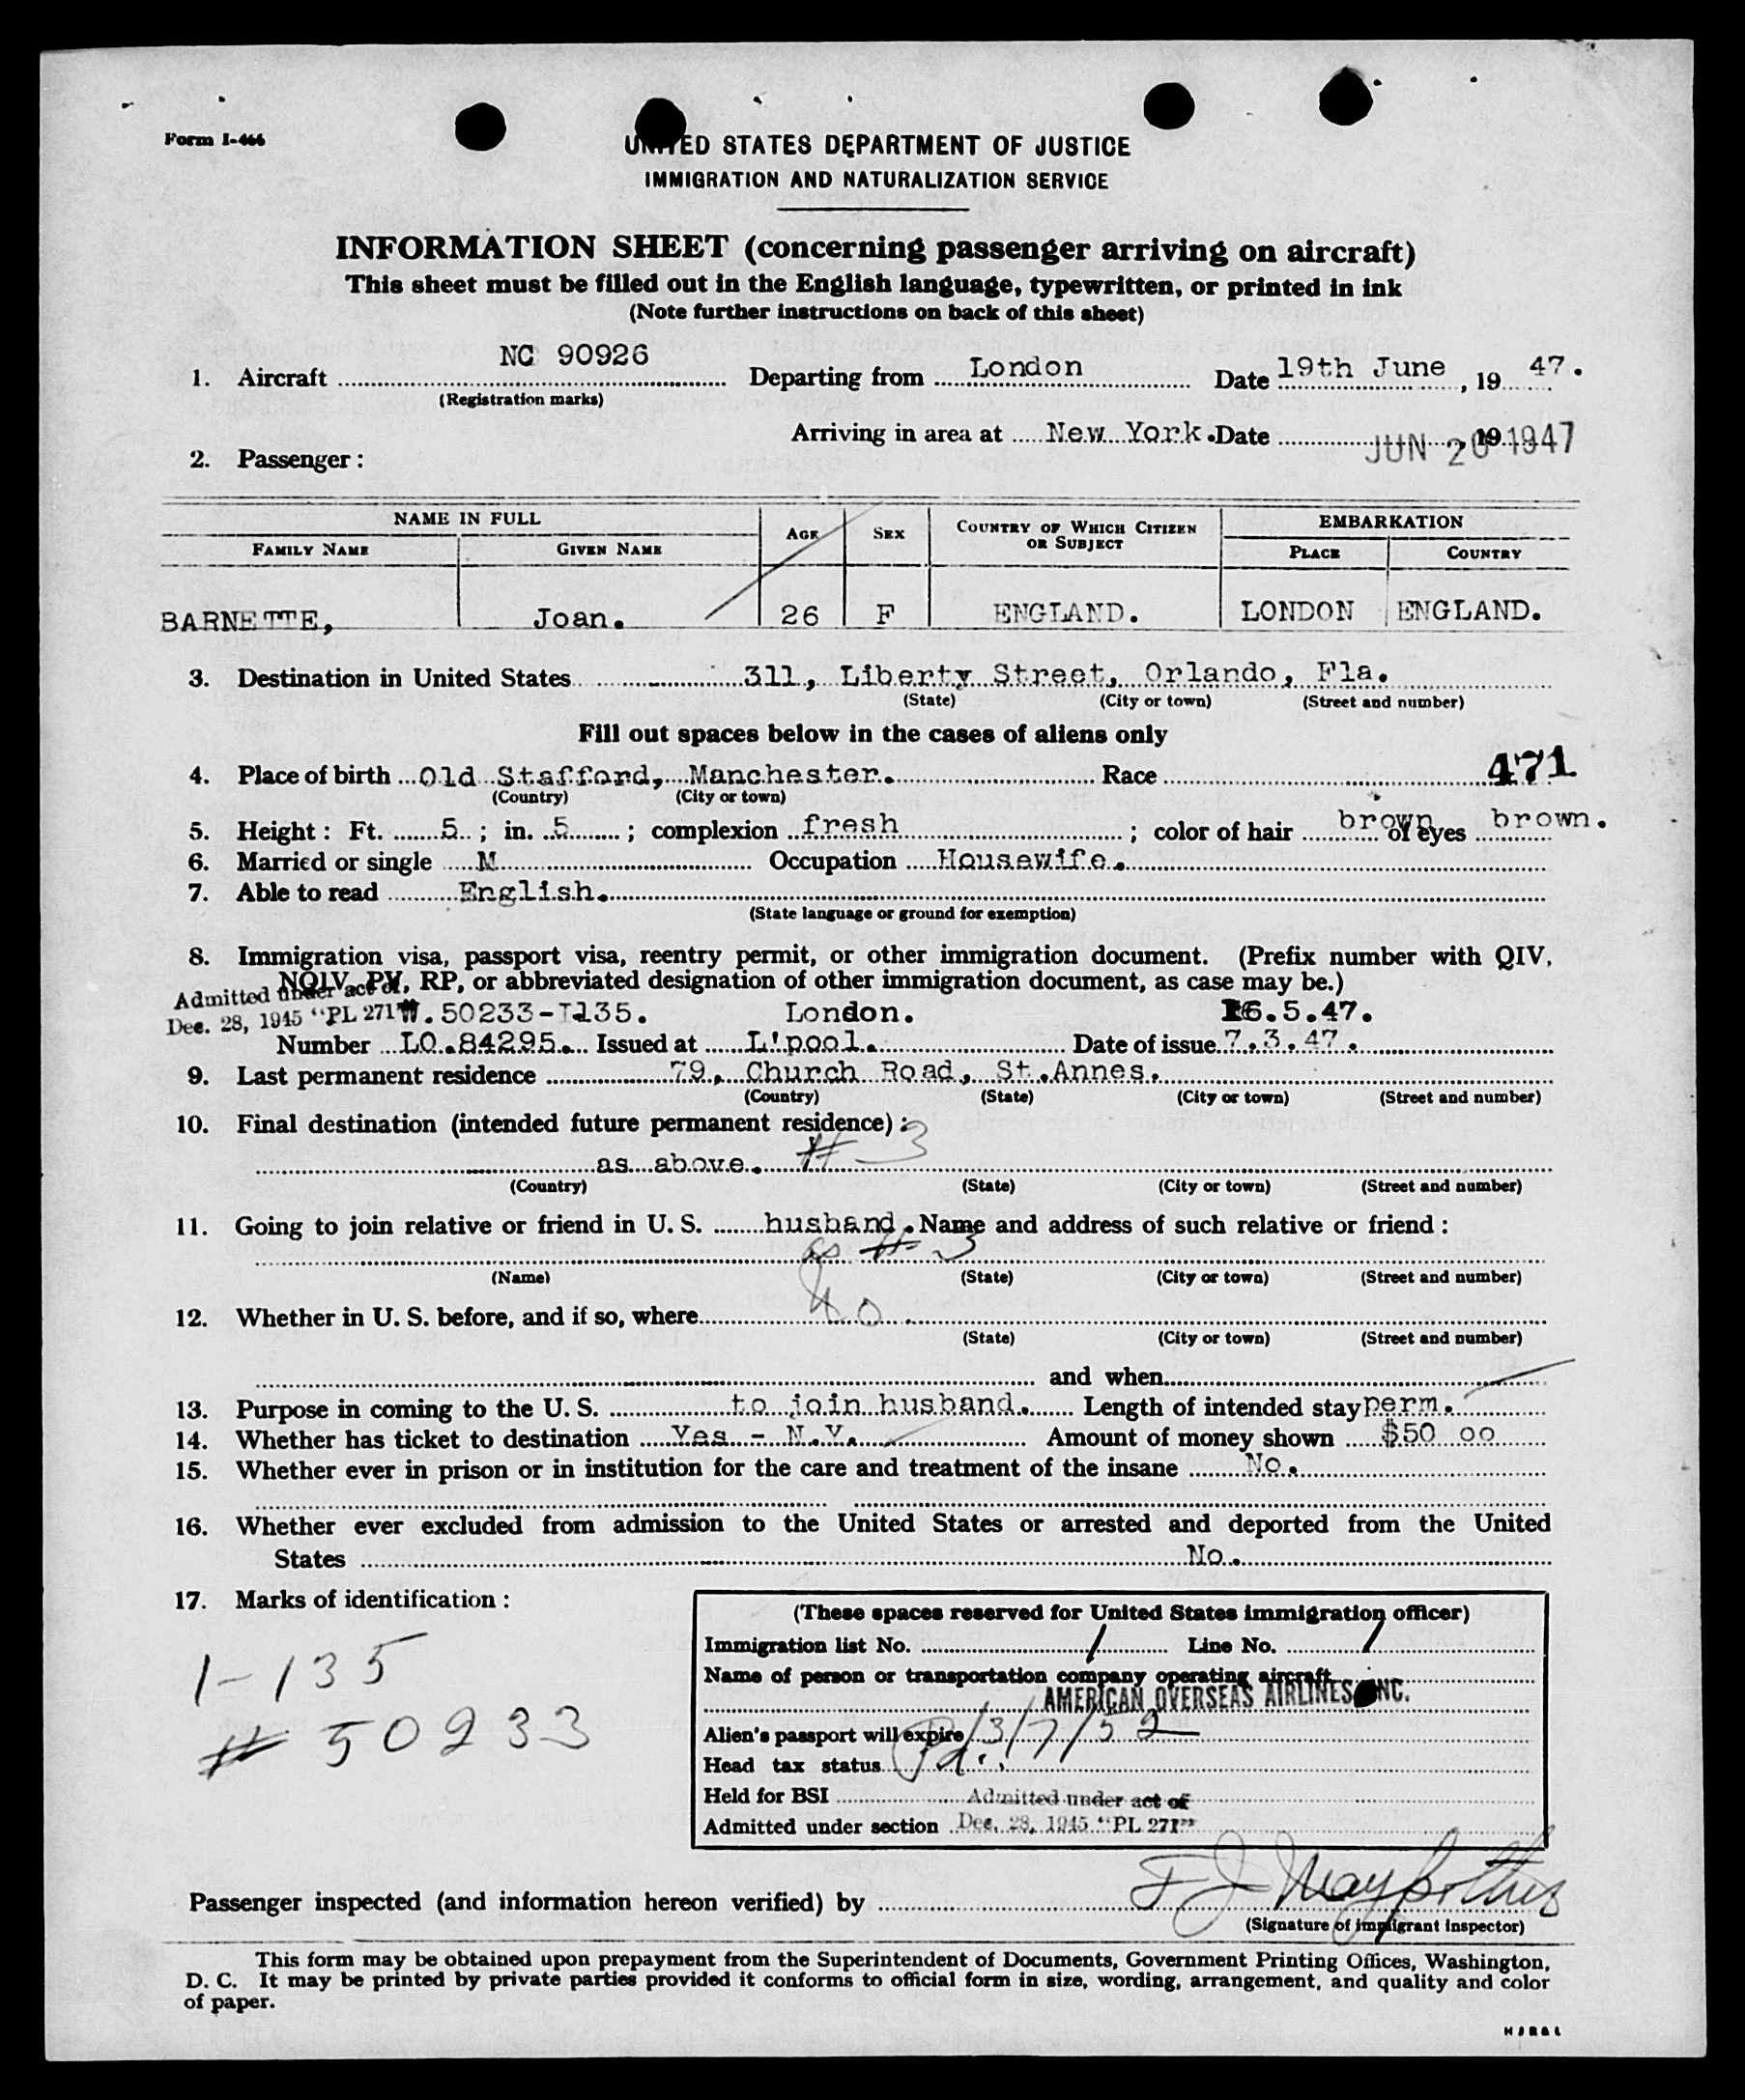 Form I-466
UNITED STATES DEPARTMENT OF JUSTICE
IMMIGRATION AND NATURALIZATION SERVICE
INFORMATION SHEET (concerning passenger arriving on aircraft)
This sheet must be filled out in the English language, typewritten, or printed in ink
(Note further instructions on back of this sheet)
1. Aircraft NC 90926 Departing from London Date 19th June, 19 47.
(Registration marks)
Arriving in area at New York. Date JUN 20 1947, 19
2. Passenger:
NAME IN FULL AGE SEX COUNTRY OF WHICH CITIZEN OR SUBJECT EMBARKATION
FAMILY NAME GIVEN NAME PLACE COUNTRY
BARNETTE, Joan. 26 F ENGLAND. LONDON ENGLAND.
3. Destination in United States 311, Liberty Street, Orlando, Fla.
(State) (City or town) (Street and number)
Fill out spaces below in the cases of aliens only
4. Place of birth Old Stafford, Manchester. Race 471
(Country) (City or town)
5. Height: Ft. 5 ; in. 5 ; complexion fresh ; color of hair brown of eyes brown.
6. Married or single M Occupation Housewife.
7. Able to read English.
(State language or ground for exemption)
8. Immigration visa, passport visa, reentry permit, or other immigration document. (Prefix number with QIV,
NQIV, PV, RP, or abbreviated designation of other immigration document, as case may be.)
Admitted under act of
Dec. 28, 1945 "PL 271" V. 50233-I135. London. 16.5.47.
Number LO.84295. Issued at L'pool. Date of issue 7.3.47.
9. Last permanent residence 79, Church Road, St.Annes.
(Country) (State) (City or town) (Street and number)
10. Final destination (intended future permanent residence):
as above. # 3
(Country) (State) (City or town) (Street and number)
11. Going to join relative or friend in U. S. husband. Name and address of such relative or friend:
as # 3
(Name) (State) (City or town) (Street and number)
12. Whether in U. S. before, and if so, where No
(State) (City or town) (Street and number)
and when
13. Purpose in coming to the U. S. to join husband. Length of intended stay perm.
14. Whether has ticket to destination Yes - N.Y. Amount of money shown $50 00
15. Whether ever in prison or in institution for the care and treatment of the insane No.
16. Whether ever excluded from admission to the United States or arrested and deported from the United
States No.
17. Marks of identification:
1-135
# 50233
(These spaces reserved for United States immigration officer)
Immigration list No. 1 Line No. 1
Name of person or transportation company operating aircraft
AMERICAN OVERSEAS AIRLINES INC.
Alien's passport will expire 3/7/52
Head tax status Pd.
Held for BSI Admitted under act of
Admitted under section Dec. 28, 1945 "PL 271"
Passenger inspected (and information hereon verified) by
(Signature of immigrant inspector)
This form may be obtained upon prepayment from the Superintendent of Documents, Government Printing Offices, Washington,
D. C. It may be printed by private parties provided it conforms to official form in size, wording, arrangement, and quality and color
of paper.